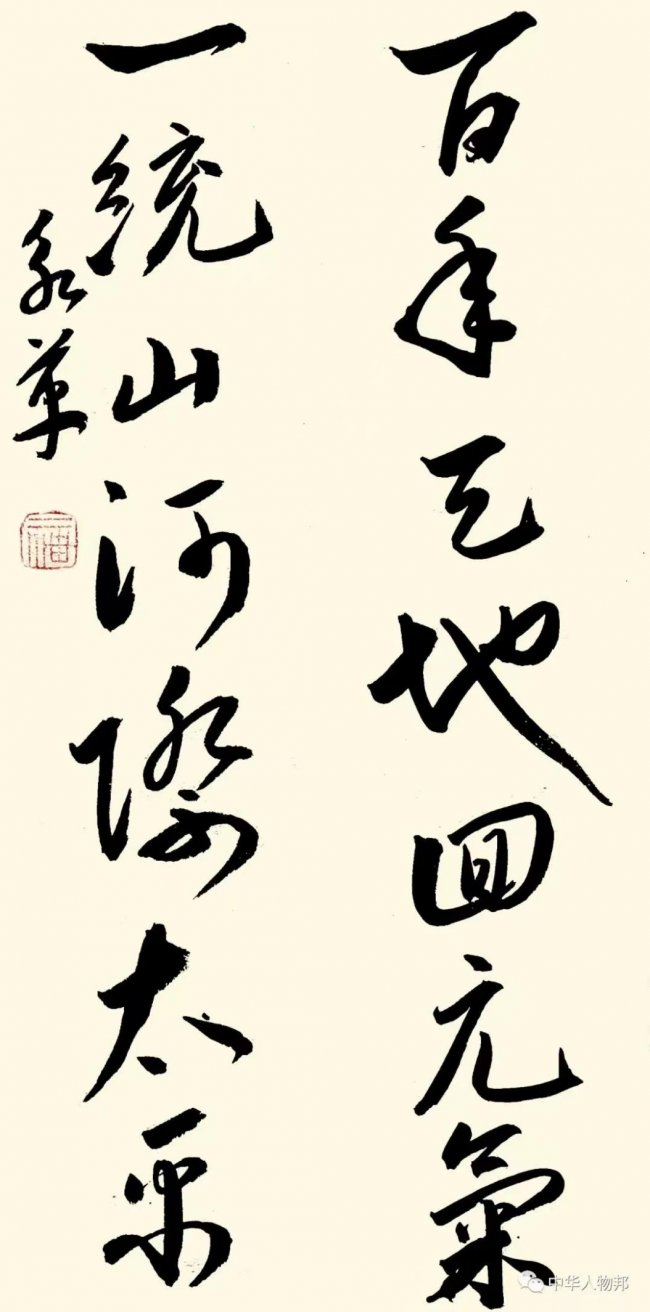 百年天地回元氣
一統山河際太平
永革
中华人物邦